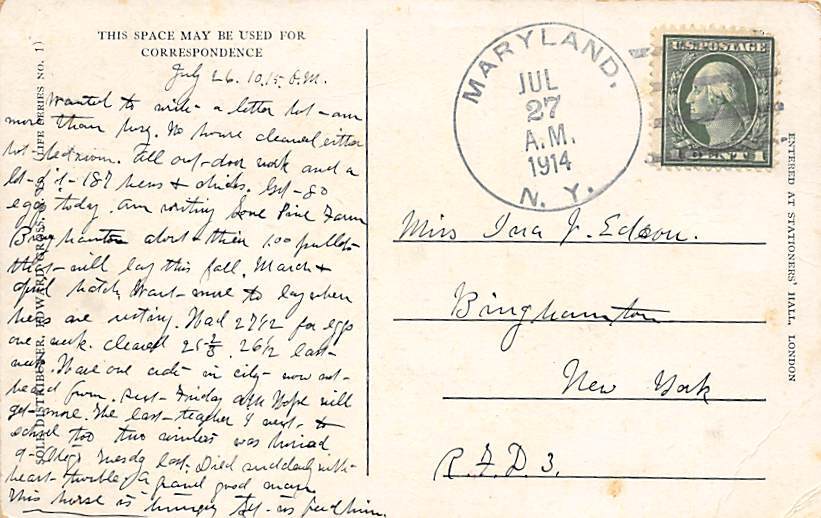 THIS SPACE MAY BE USED FOR
CORRESPONDENCE
July 26. 10.15 P.M.
Wanted to write a letter but am
more than busy. No house cleaned either
but bedroom. All out-door work and a
lot of it - 187 hens & chicks. Get 80
eggs today. Am writing Lone Pine Farm
Binghamton about their 100 pullets
that will lay this fall. March &
April hatch. Want more to lay when
hens are resting. Had 27 1/2 for eggs
one week. cleared 25 2/3. 26 1/2 last
week. Have one in city now not
heard from. Sent Friday a.m. Hope will
get more. The last teacher I went to
school too two winters was buried
Tuesday last. Died suddenly with
heart trouble. A grand good man
This horse is hungry let us feed him.
SOLE DISTRIBUTER, EDWARD GROSS, N. Y. (LIFE SERIES NO. 1)
MARYLAND,
JUL
27
A.M.
1914
N. Y.
U.S. POSTAGE
1 CENT 1
Miss Ina J. Edson.
Binghamton
New York
R.F.D. 3.
ENTERED AT STATIONERS' HALL, LONDON